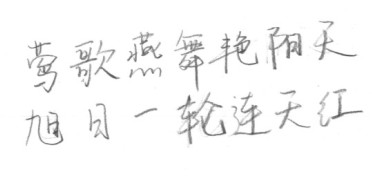 莺歌燕舞艳阳天
旭日一轮连天红